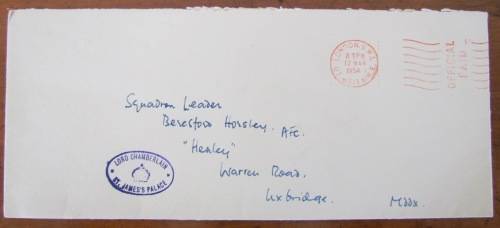 LONDON. S.W.1.
8 15 PM
12 MAR
1954
OFFICIAL
PAID
Squadron Leader
Beresford Horsley. AFC.
"Henley"
Warren Road.
Uxbridge. Mddx.
LORD CHAMBERLAIN
ST. JAMES'S PALACE